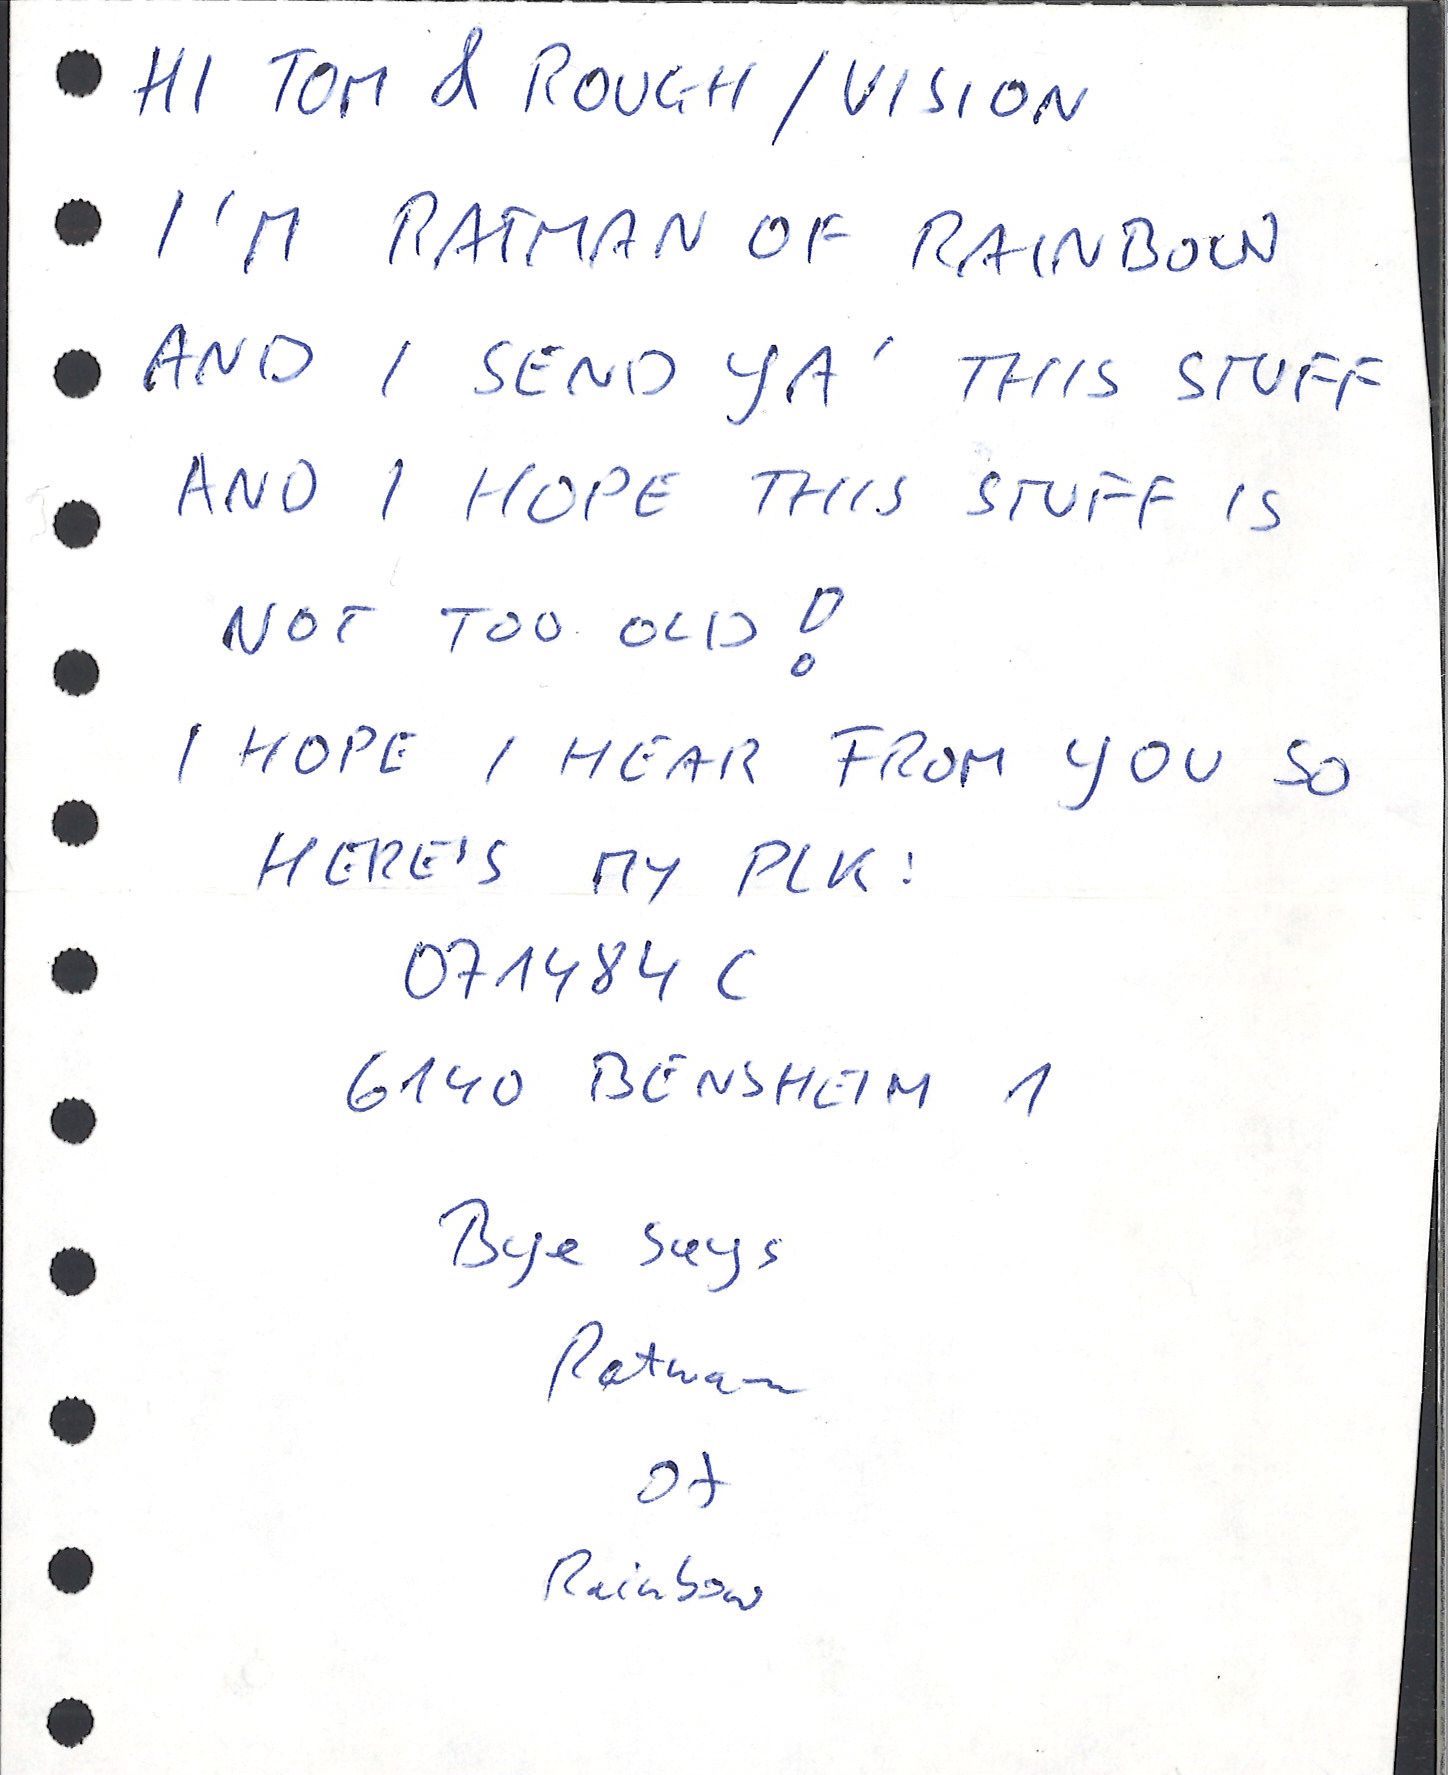 HI TOM & ROUGH / VISION
I'M RATMAN OF RAINBOW
AND I SEND YA' THIS STUFF
AND I HOPE THIS STUFF IS
NOT TOO OLD!
I HOPE I HEAR FROM YOU SO
HERE'S MY PLK:
071484 C
6140 BENSHEIM 1
Bye says
Ratman
of
Rainbow